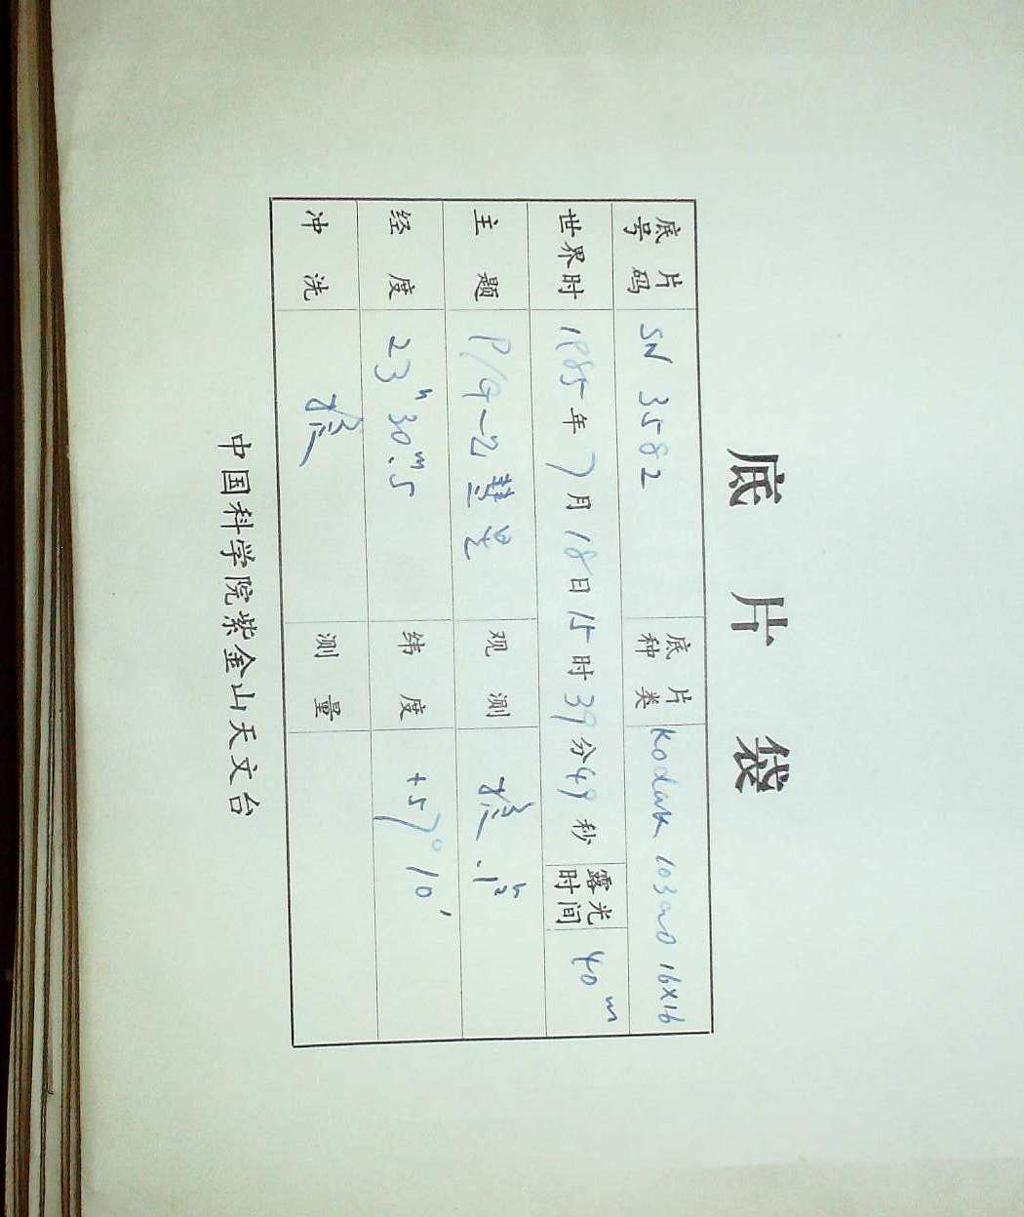 底片袋
底片号码 SN 3582 底片种类 Kodak 103aO 16×16
世界时 1985年7月18日15时39分49秒 露光时间 40m
主题 P/G-Z 彗星 观测
经度 23h30m.5 纬度 +57°10′
冲洗 测量
中国科学院紫金山天文台